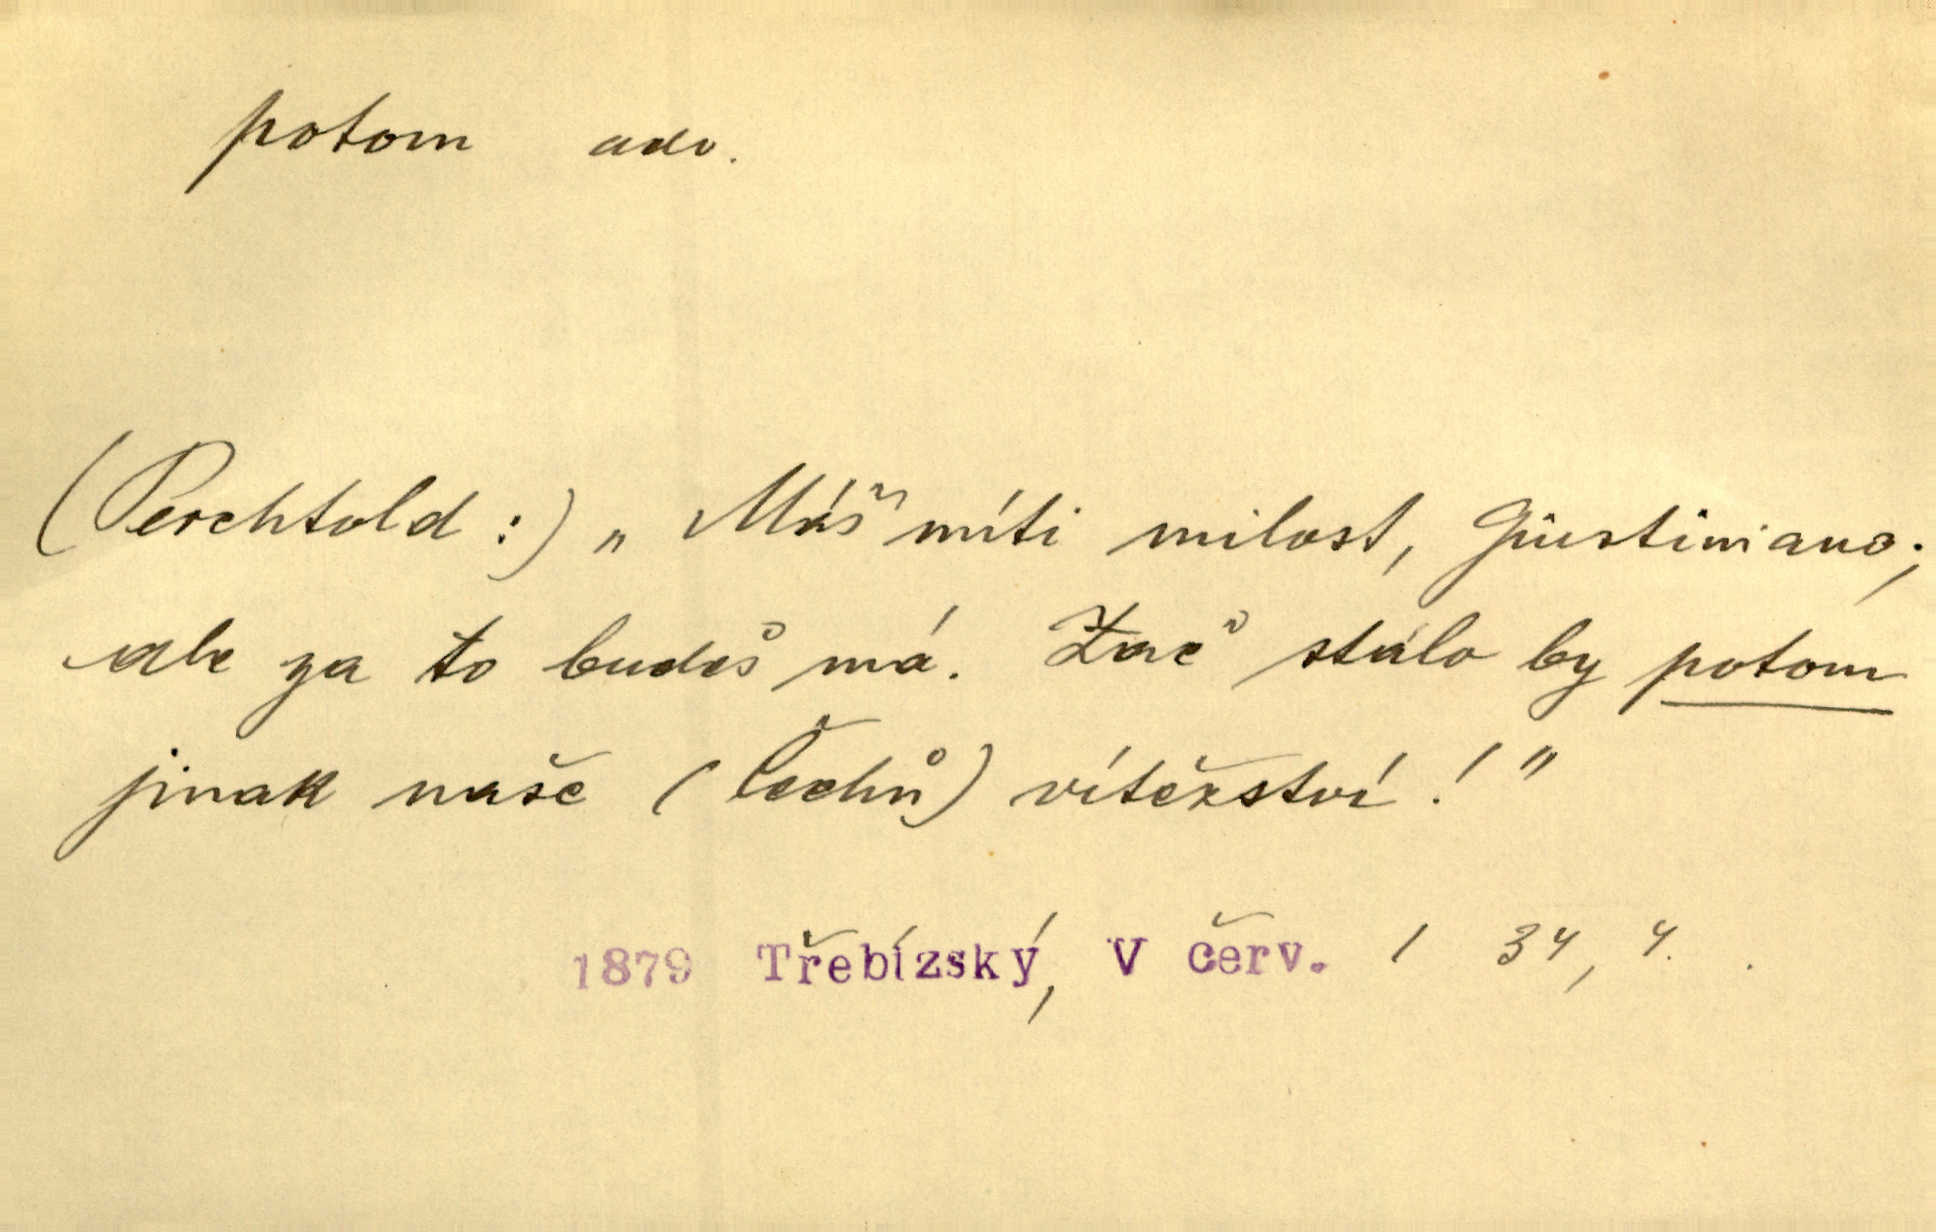 potom adv.
(Perchtold:) „Máš míti milost, Giustiniano;
ale za to budeš má. Zač stálo by potom
jinak naše (Čechů) vítěství!"
1879 Třebízský, V červ. 1 34, 4.